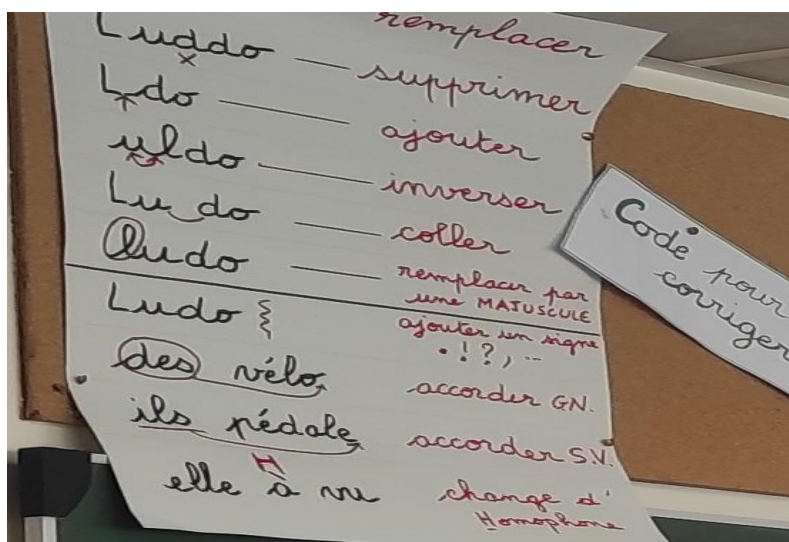 remplacer
Luddo supprimer
x
Ldo ajouter
uldo inverser
Lu do coller
ludo remplacer par
une MAJUSCULE
Ludo ajouter un signe
. ! ? , ...
des vélo accorder GN.
ils pédale accorder S.V.
H
elle à vu change d'
Homophone
Code pour
corriger